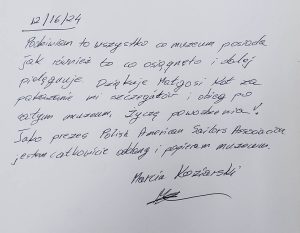 12/16/24
Podziwiam to wszystko co muzeum posiada
jak również to co osiągnęto i dalej
pielęgnuje. Dziękuję Małgosi Kot za
pokazanie mi szczegółów i obieg po
całym muzeum. Życzę powodzenia!
Jako prezes Polish American Sailors Association
jestem całkowicie oddany i popieram muzeum.
Marcin Kozierski